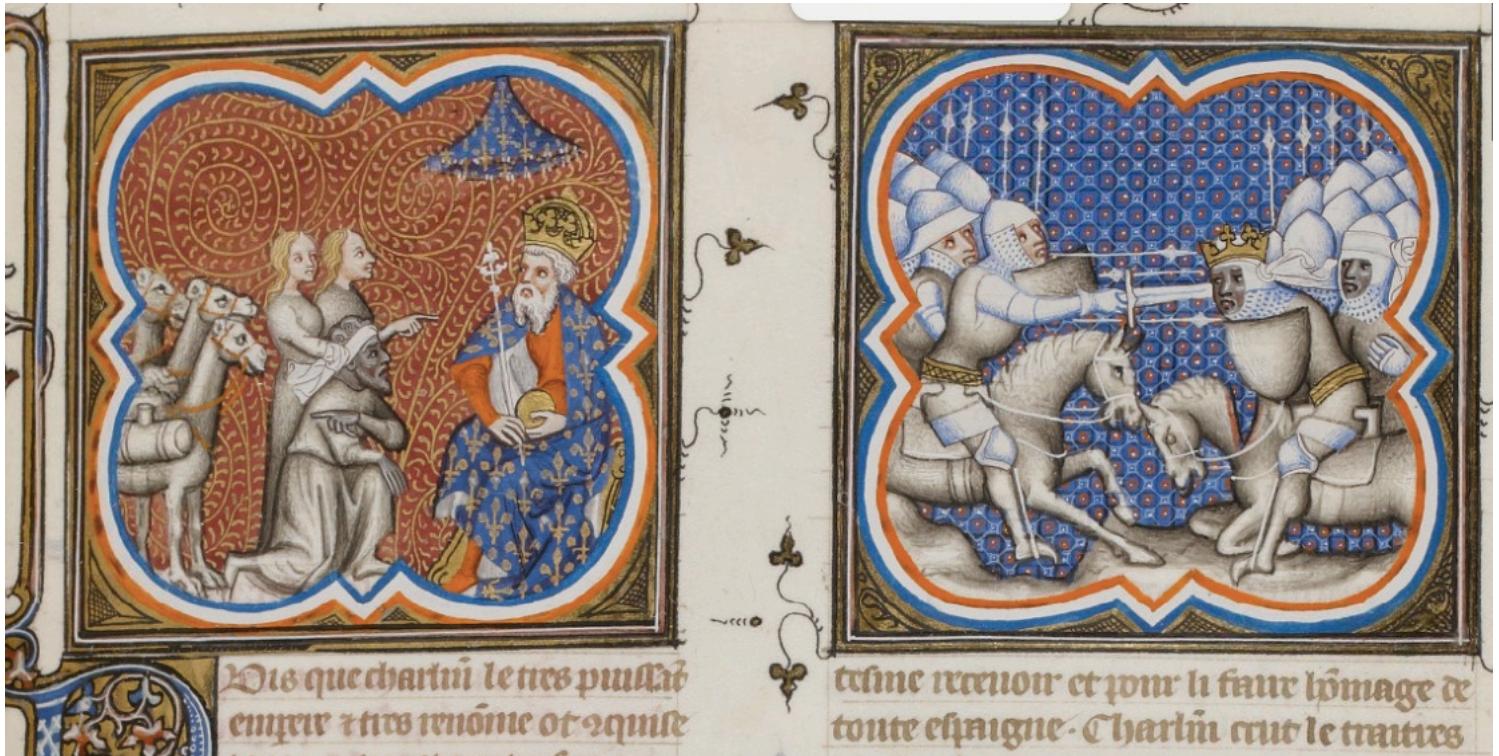 PUis que charlm̃ le tres puissãt
empere ⁊ tres renõme ot ꝯquise
tesme receuoir et pour li faire hõmage de
toute espaigne · Charlm̃ crut le traitres